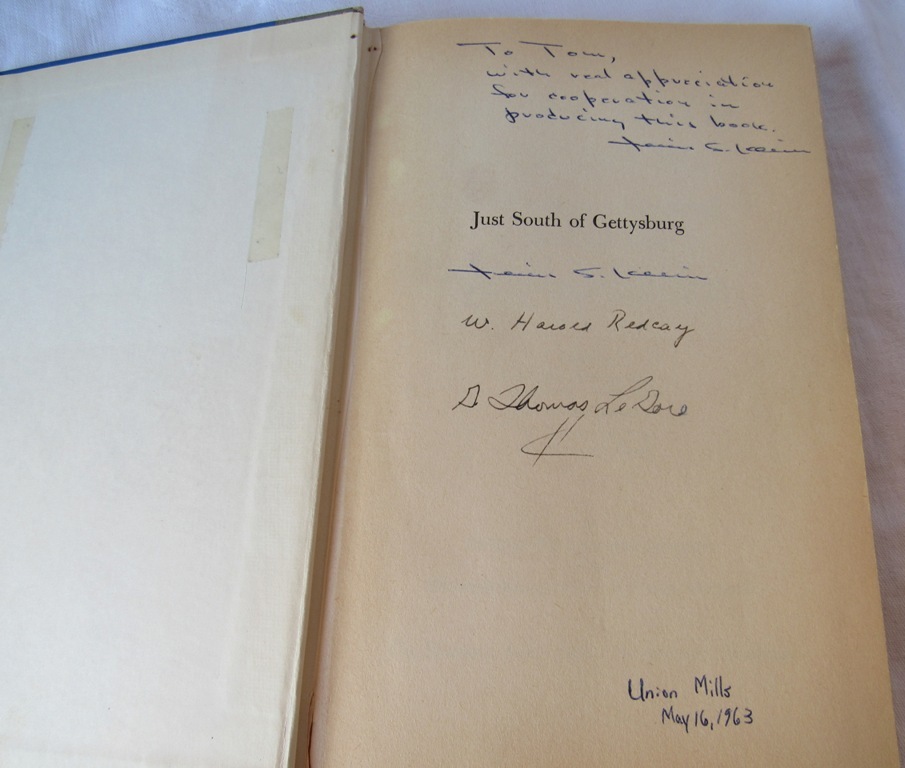 To Tom,
with real appreciation
for cooperation in
producing this book.
S. Klein
Just South of Gettysburg
S. Klein
W. Harold Redcay
G. Thomas LeGore
Union Mills
May 16, 1963